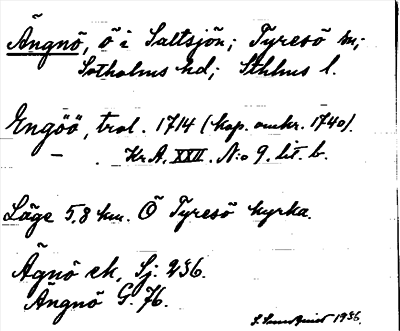 Ängnö, ö i Saltsjön; Tyresö sn;
Sotholms hd; Sthlms l.
Engöö, trol. 1714 (kop. omkr. 1740).
— . Kr.A. XXII. N:o 9. lit. b.
Läge 5,8 km. Ö Tyresö kyrka.
Ägnö ek, Sj. 236.
Ängnö G. 76.
1936.